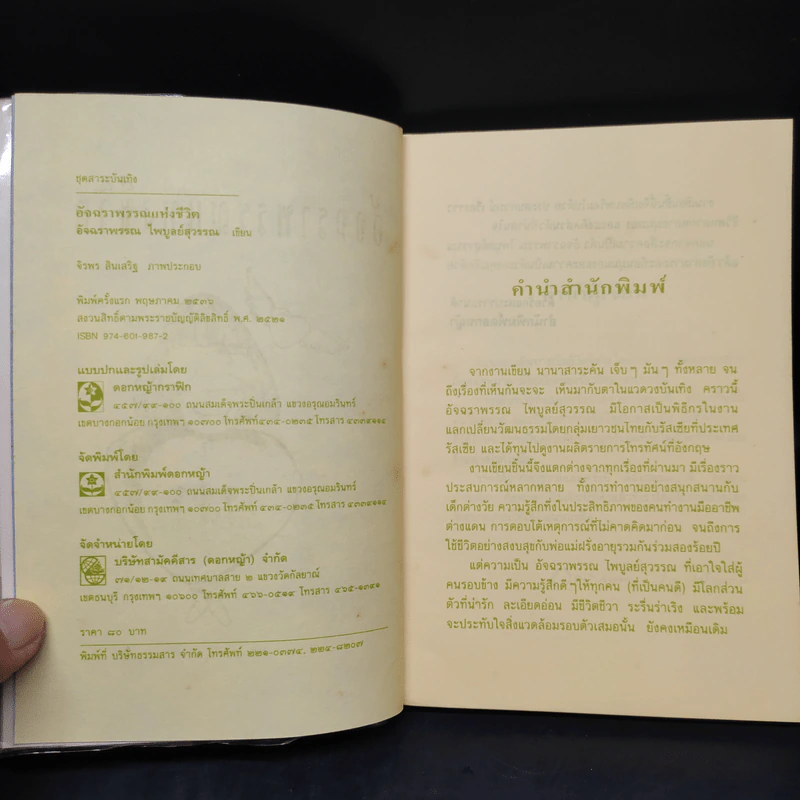 ชุดสาระบันเทิง
อัจฉราพรรณแห่งชีวิต
อัจฉราพรรณ ไพบูลย์สุวรรณ เขียน
จิรพร สินเสริฐ ภาพประกอบ
พิมพ์ครั้งแรก พฤษภาคม ๒๕๓๖
สงวนสิทธิ์ตามพระราชบัญญัติลิขสิทธิ์ พ.ศ. ๒๕๒๑
ISBN 974-601-987-2
แบบปกและรูปเล่มโดย
ดอกหญ้ากราฟิก
๔๕๗/๙๙-๑๐๐ ถนนสมเด็จพระปิ่นเกล้า แขวงอรุณอมรินทร์
เขตบางกอกน้อย กรุงเทพฯ ๑๐๗๐๐ โทรศัพท์ ๔๓๔-๐๒๓๕ โทรสาร ๔๓๓๙๑๑๔
จัดพิมพ์โดย
สำนักพิมพ์ดอกหญ้า
๔๕๗/๙๙-๑๐๐ ถนนสมเด็จพระปิ่นเกล้า แขวงอรุณอมรินทร์
เขตบางกอกน้อย กรุงเทพฯ ๑๐๗๐๐ โทรศัพท์ ๔๓๔-๐๒๓๕ โทรสาร ๔๓๓๙๑๑๔
จัดจำหน่ายโดย
บริษัทสามัคคีสาร (ดอกหญ้า) จำกัด
๗๑/๑๒-๑๙ ถนนเทศบาลสาย ๒ แขวงวัดกัลยาณ์
เขตธนบุรี กรุงเทพฯ ๑๐๖๐๐ โทรศัพท์ ๔๖๖-๐๕๑๙ โทรสาร ๔๖๕-๑๓๙๑
ราคา ๘๐ บาท
พิมพ์ที่ บริษัทธรรมสาร จำกัด โทรศัพท์ ๒๒๑-๐๓๗๔, ๒๒๔-๘๒๐๗
คำนำสำนักพิมพ์
จากงานเขียน นานาสาระคัน เจ็บๆ มันๆ ทั้งหลาย จน
ถึงเรื่องที่เห็นกันจะจะ เห็นมากับตาในแวดวงบันเทิง คราวนี้
อัจฉราพรรณ ไพบูลย์สุวรรณ มีโอกาสเป็นพิธีกรในงาน
แลกเปลี่ยนวัฒนธรรมโดยกลุ่มเยาวชนไทยกับรัสเซียที่ประเทศ
รัสเซีย และได้ทุนไปดูงานผลิตรายการโทรทัศน์ที่อังกฤษ
งานเขียนชิ้นนี้จึงแตกต่างจากทุกเรื่องที่ผ่านมา มีเรื่องราว
ประสบการณ์หลากหลาย ทั้งการทำงานอย่างสนุกสนานกับ
เด็กต่างวัย ความรู้สึกทึ่งในประสิทธิภาพของคนทำงานมืออาชีพ
ต่างแดน การตอบโต้เหตุการณ์ที่ไม่คาดคิดมาก่อน จนถึงการ
ใช้ชีวิตอย่างสงบสุขกับพ่อแม่ฝรั่งอายุรวมกันร่วมสองร้อยปี
แต่ความเป็น อัจฉราพรรณ ไพบูลย์สุวรรณ ที่เอาใจใส่ผู้
คนรอบข้าง มีความรู้สึกดีๆให้ทุกคน (ที่เป็นคนดี) มีโลกส่วน
ตัวที่น่ารัก ละเอียดอ่อน มีชีวิตชีวา ระรื่นร่าเริง และพร้อม
จะประทับใจสิ่งแวดล้อมรอบตัวเสมอนั้น ยังคงเหมือนเดิม